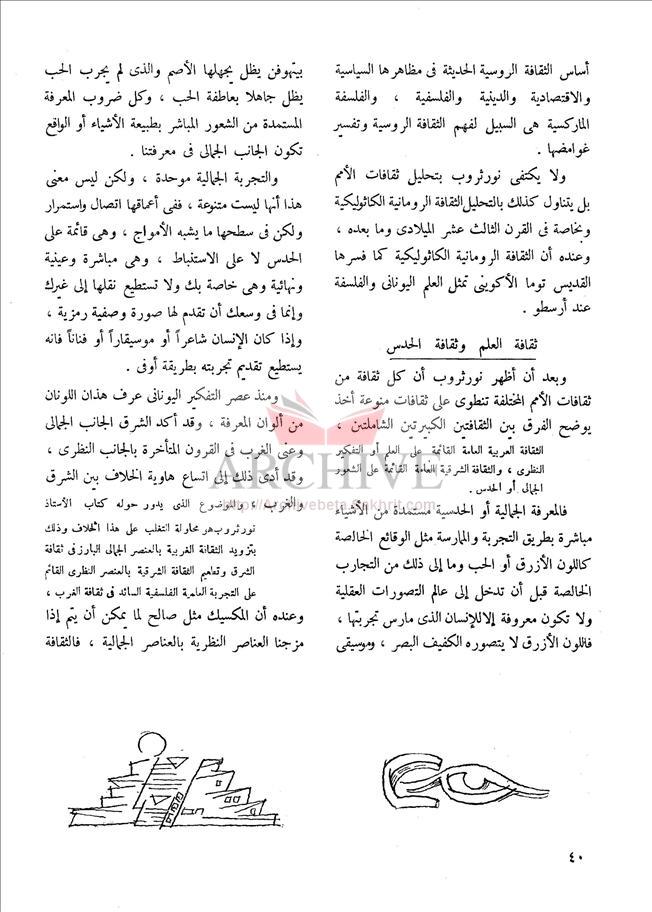 أساس الثقافة الروسية الحديثة فى مظاهرها السياسية
والاقتصادية والدينية والفلسفية ، والفلسفة
الماركسية هى السبيل لفهم الثقافة الروسية وتفسير
غوامضها .
ولا يكتفى نورثروب بتحليل ثقافات الأمم
بل يتناول كذلك بالتحليل الثقافة الرومانية الكاثوليكية
وبخاصة فى القرن الثالث عشر الميلادى وما بعده ،
وعنده أن الثقافة الرومانية الكاثوليكية كما فسرها
القديس توما الأكوينى تمثل العلم اليونانى والفلسفة
عند أرسطو .
ثقافة العلم وثقافة الحدس
وبعد أن أظهر نورثروب أن كل ثقافة من
ثقافات الأمم المختلفة تنطوى على ثقافات منوعة أخذ
يوضح الفرق بين الثقافتين الكبيرتين الشاملتين ،
الثقافة الغربية العامة القائمة على العلم أو التفكير
النظرى ، والثقافة الشرقية العامة القائمة على الشعور
الجمالى أو الحدس .
فالمعرفة الجمالية أو الحدسية مستمدة من الأشياء
مباشرة بطريق التجربة والممارسة مثل الوقائع الخالصة
كاللون الأزرق أو الحب وما إلى ذلك من التجارب
الخالصة قبل أن تدخل إلى عالم التصورات العقلية
ولا تكون معروفة إلا للإنسان الذى مارس تجربتها ،
فاللون الأزرق لا يتصوره الكفيف البصر ، وموسيقى
بيتهوفن يظل يجهلها الأصم والذى لم يجرب الحب
يظل جاهلا بعاطفة الحب ، وكل ضروب المعرفة
المستمدة من الشعور المباشر بطبيعة الأشياء أو الواقع
تكون الجانب الجمالى فى معرفتنا .
والتجربة الجمالية موحدة ، ولكن ليس معنى
هذا أنها ليست متنوعة ، ففى أعماقها اتصال واستمرار
ولكن فى سطحها ما يشبه الأمواج ، وهى قائمة على
الحدس لا على الاستنباط ، وهى مباشرة وعينية
ونهائية وهى خاصة بك ولا تستطيع نقلها إلى غيرك
وإنما فى وسعك أن تقدم لها صورة وصفية رمزية ،
وإذا كان الإنسان شاعراً أو موسيقاراً أو فناناً فانه
يستطيع تقديم تجربته بطريقة أوفى .
ومنذ عصر التفكير اليونانى عرف هذان اللونان
من ألوان المعرفة ، وقد أكد الشرق الجانب الجمالى
وعنى الغرب فى القرون المتأخرة بالجانب النظرى ،
وقد أدى ذلك إلى اتساع هاوية الخلاف بين الشرق
والغرب ، والموضوع الذى يدور حوله كتاب الأستاذ
نورثروب هو محاولة التغلب على هذا الخلاف وذلك
بتزويد الثقافة الغربية بالعنصر الجمالى البارز فى ثقافة
الشرق وتطعيم الثقافة الشرقية بالعنصر النظرى القائم
على التجربة العلمية الفلسفية السائد فى ثقافة الغرب ،
وعنده أن المكسيك مثل صالح لما يمكن أن يتم إذا
مزجنا العناصر النظرية بالعناصر الجمالية ، فالثقافة
ARCHIVE
http://Archivebeta.Sakhrit.com
٤٠